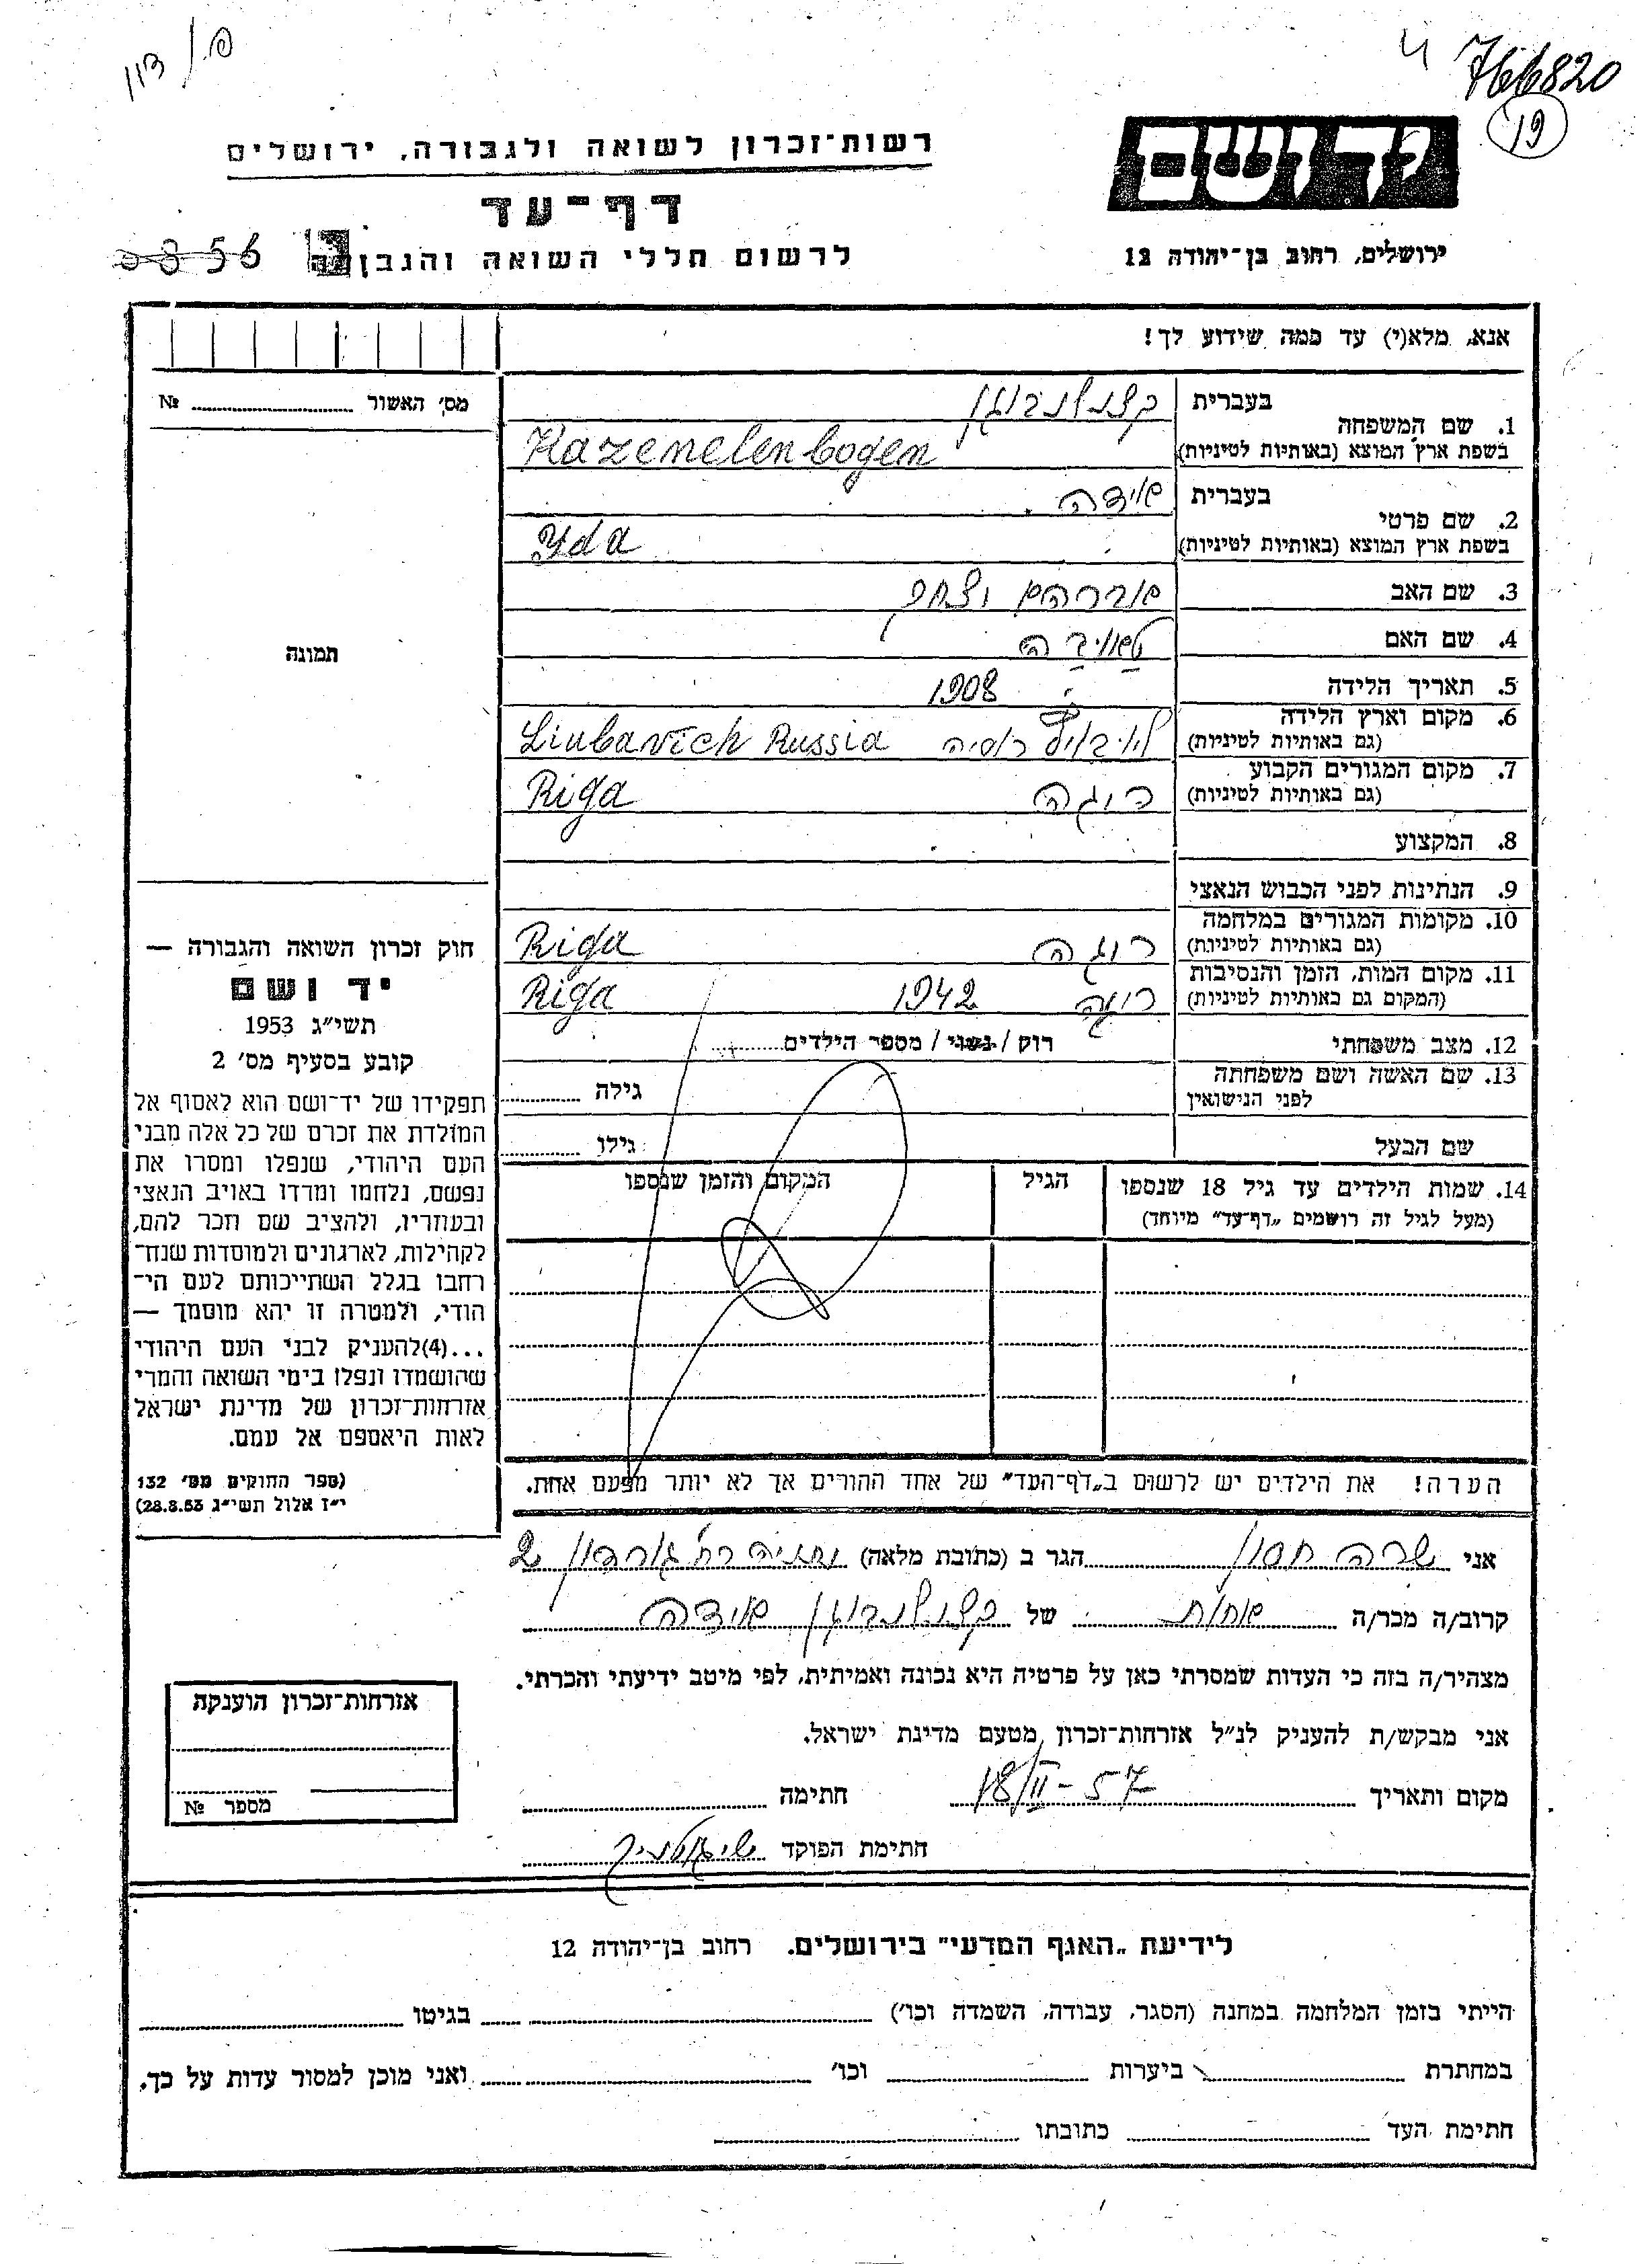 766820
19
יד ושם
רשות־זכרון לשואה ולגבורה, ירושלים
דף־עד
לרשום חללי השואה והגבורה
ירושלים, רחוב בן־יהודה 12
אנא, מלא(י) עד כמה שידוע לך!
מס׳ האשור № 
1. שם המשפחה בעברית קצנלנבוגן
בשפת ארץ המוצא (באותיות לטיניות) Kazenelenbogen
2. שם פרטי בעברית אידה
בשפת ארץ המוצא (באותיות לטיניות) Yda
3. שם האב אברהם יצחק
4. שם האם
תמונה
5. תאריך הלידה 1908
6. מקום וארץ הלידה רוסיה Liubavich Russia
(גם באותיות לטיניות)
7. מקום המגורים הקבוע ריגה Riga
(גם באותיות לטיניות)
8. המקצוע
9. הנתינות לפני הכבוש הנאצי
10. מקומות המגורים במלחמה ריגה Riga
(גם באותיות לטיניות)
11. מקום המות, הזמן והנסיבות ריגה 1942 Riga
(המקום גם באותיות לטיניות)
12. מצב משפחתי רוק / נשוי / מספר הילדים
13. שם האשה ושם משפחתה גילה
לפני הנישואין
שם הבעל גילו
14. שמות הילדים עד גיל 18 שנספו הגיל המקום והזמן שנספו
(מעל לגיל זה רושמים „דף־עד״ מיוחד)
הערה! את הילדים יש לרשום ב„דף־העד״ של אחד ההורים אך לא יותר מפעם אחת.
חוק זכרון השואה והגבורה —
יד ושם
תשי״ג 1953
קובע בסעיף מס׳ 2
תפקידו של יד־ושם הוא לאסוף אל
המולדת את זכרם של כל אלה מבני
העם היהודי, שנפלו ומסרו את
נפשם, נלחמו ומרדו באויב הנאצי
ובעוזריו, ולהציב שם וזכר להם,
לקהילות, לארגונים ולמוסדות שנח־
רחבו בגלל השתייכותם לעם הי־
הודי, ולמטרה זו יהא מוסמך —
...(4) להעניק לבני העם היהודי
שהושמדו ונפלו בימי השואה והמרי
אזרחות־זכרון של מדינת ישראל
לאות היאספם אל עמם.
(ספר החוקים מס׳ 132
י״ז אלול תשי״ג 28.8.53)
אני שרה חסון הגר ב (כתובת מלאה) נתניה רח׳ גורדון 2
קרוב/ה מכר/ה אחות של קצנלנבוגן אידה
מצהיר/ה בזה כי העדות שמסרתי כאן על פרטיה היא נכונה ואמיתית, לפי מיטב ידיעתי והכרתי.
אני מבקש/ת להעניק לנ״ל אזרחות־זכרון מטעם מדינת ישראל.
מקום ותאריך 18/II-57 חתימה
חתימת הפוקד
אזרחות־זכרון הוענקה
מספר №
לידיעת „האגף המדעי״ בירושלים. רחוב בן־יהודה 12
הייתי בזמן המלחמה במחנה (הסגר, עבודה, השמדה וכו׳) בגיטו
במחתרת ביערות וכו׳ ואני מוכן למסור עדות על כך.
חתימת העד כתובתו